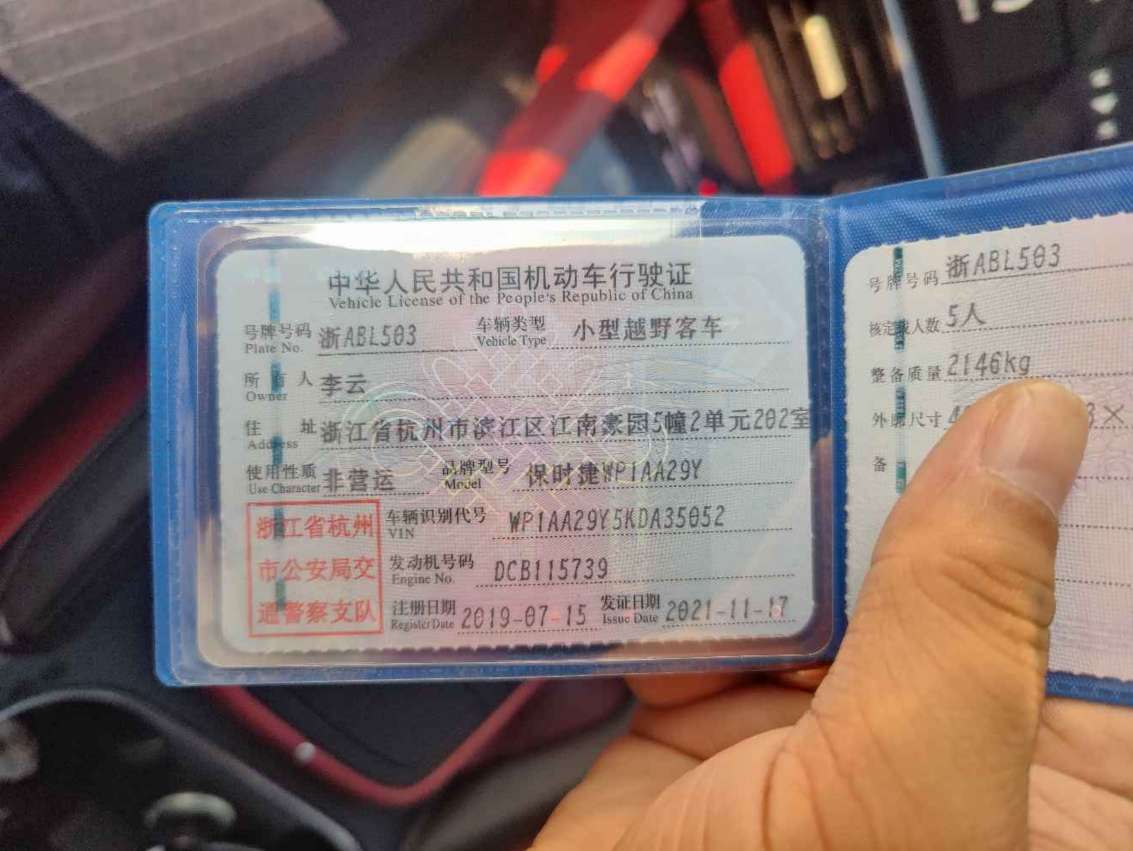 中华人民共和国机动车行驶证
Vehicle License of the People's Republic of China
号牌号码 浙ABL503 车辆类型 小型越野客车
Plate No. Vehicle Type
所有人 李云
Owner
住址 浙江省杭州市滨江区江南豪园5幢2单元202室
Address
使用性质 非营运 品牌型号 保时捷WP1AA29Y
Use Character Model
浙江省杭州
市公安局交
通警察支队
车辆识别代号 WP1AA29Y5KDA35052
VIN
发动机号码 DCB115739
Engine No.
注册日期 2019-07-15 发证日期 2021-11-17
Register Date Issue Date
号牌号码 浙ABL503
核定载人数 5人
整备质量 2146kg
外廓尺寸
备